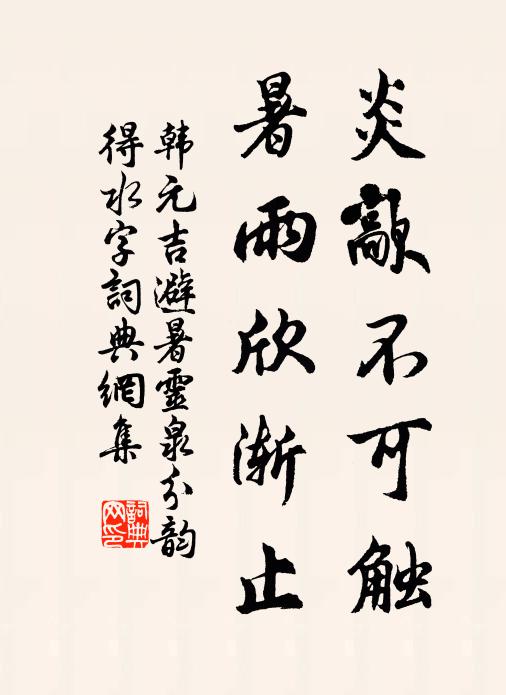 炎歊不可触
暑雨欣渐止
韩元吉避暑靈泉分韵
得水字詞典網集
詞典
网印